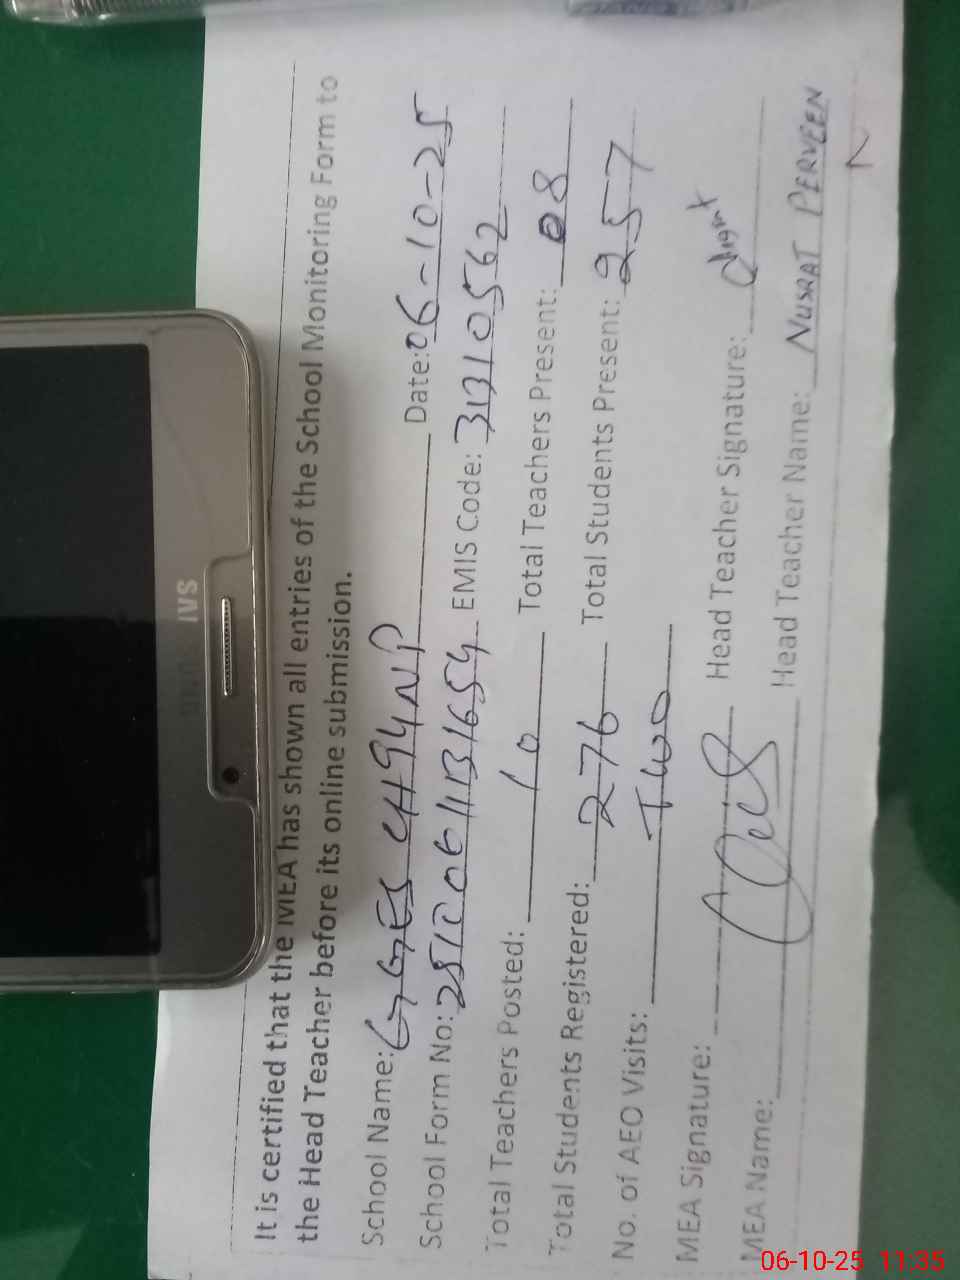 It is certified that the MEA has shown all entries of the School Monitoring Form to
the Head Teacher before its online submission.
School Name: GGES 4194NP Date: 06-10-25
School Form No: 2510061131654 EMIS Code: 31310562
Total Teachers Posted: 10 Total Teachers Present: 08
Total Students Registered: 276 Total Students Present: 257
No. of AEO Visits: Two
MEA Signature: Head Teacher Signature:
MEA Name: Head Teacher Name: NUSRAT PERVEEN
06-10-25 11:35